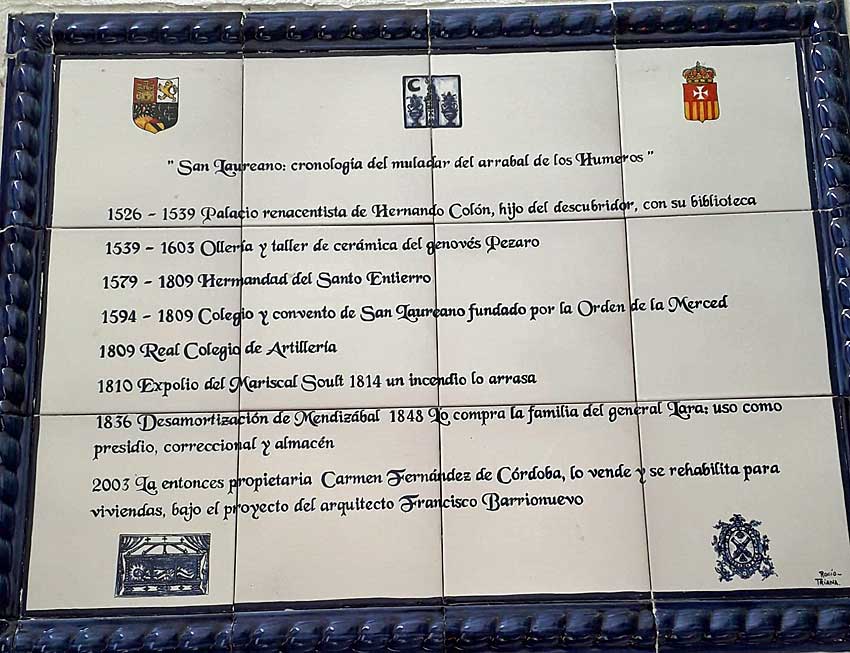 " San Laureano: cronología del muladar del arrabal de los Humeros "
1526 - 1539 Palacio renacentista de Hernando Colón, hijo del descubridor, con su biblioteca
1539 - 1603 Ollería y taller de cerámica del genovés Pezaro
1579 - 1809 Hermandad del Santo Entierro
1594 - 1809 Colegio y convento de San Laureano fundado por la Orden de la Merced
1809 Real Colegio de Artillería
1810 Expolio del Mariscal Soult 1814 un incendio lo arrasa
1836 Desamortización de Mendizábal 1848 Lo compra la familia del general Lara: uso como
presidio, correccional y almacén
2003 La entonces propietaria Carmen Fernández de Córdoba, lo vende y se rehabilita para
viviendas, bajo el proyecto del arquitecto Francisco Barrionuevo
C
Rocío-
TRIANA